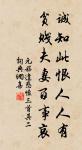 誠知此恨人人有
貧賤夫妻百事哀
元稹遣悲懷三首其二
詞典網集